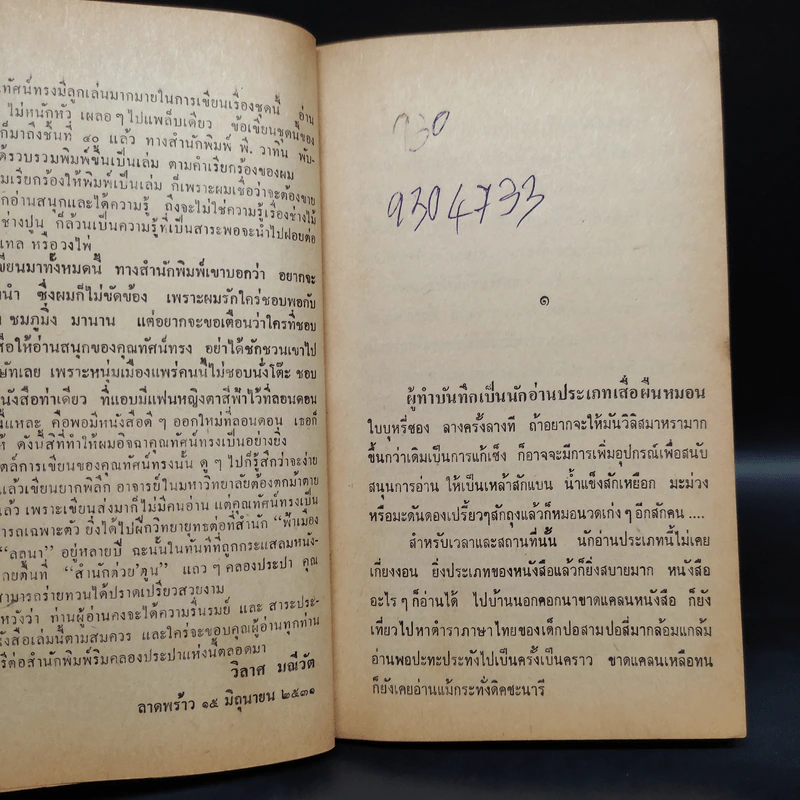 ทัศน์ทรงมีลูกเล่นมากมายในการเขียนเรื่องชุดนี้ อ่าน
ไม่หนักหัว เผลอๆ ไปแพล็บเดียว ข้อเขียนชุดนี้ของ
ก็มาถึงชิ้นที่ ๔๐ แล้ว ทางสำนักพิมพ์ พี. วาทิน พับ-
ด้รวบรวมพิมพ์ขึ้นเป็นเล่ม ตามคำเรียกร้องของผม
มเรียกร้องให้พิมพ์เป็นเล่ม ก็เพราะผมเชื่อว่าจะต้องขาย
กอ่านสนุกและได้ความรู้ ถึงจะไม่ใช่ความรู้เรื่องช่างไม้
ช่างปูน ก็ล้วนเป็นความรู้ที่เป็นสาระพอจะนำไปฝอยต่อ
เทล หรือวงไพ่
ขียนมาทั้งหมดนี้ ทางสำนักพิมพ์เขาบอกว่า อยากจะ
นำ ซึ่งผมก็ไม่ขัดข้อง เพราะผมรักใคร่ชอบพอกับ
ชมภูมิ่ง มานาน แต่อยากจะขอเตือนว่าใครที่ชอบ
สือให้อ่านสนุกของคุณทัศน์ทรง อย่าได้ชักชวนเขาไป
ษัทเลย เพราะหนุ่มเมืองแพร่คนนี้ไม่ชอบนั่งโต๊ะ ชอบ
นังสือท่าเดียว ที่แอบมีแฟนหญิงตาสีฟ้าไว้ที่ลอนดอน
นี้แหละ คือพอมีหนังสือดีๆ ออกใหม่ที่ลอนดอน เธอก็
ห้ ดังนี้สิที่ทำให้ผมอิจฉาคุณทัศน์ทรงเป็นอย่างยิ่ง
ตล์การเขียนของคุณทัศน์ทรงนั้น ดูๆ ไปก็รู้สึกว่าจะง่าย
แล้วเขียนยากพิลึก อาจารย์ในมหาวิทยาลัยต้องตกม้าตาย
แล้ว เพราะเขียนส่งมาก็ไม่มีคนอ่าน แต่คุณทัศน์ทรงเป็น
ารถเฉพาะตัว ยิ่งได้ไปฝึกวิทยายุทธต่อที่สำนัก "ฟ้าเมือง
"ลลนา" อยู่หลายปี ฉะนั้นในทันทีที่ถูกกระแสลมหนัง-
กยต้นที่ "สำนักด่วย'ตูน" แถวๆ คลองประปา คุณ
สามารถร่ายทวนได้ปราดเปรียวสวยงาม
หวังว่า ท่านผู้อ่านคงจะได้ความรื่นรมย์ และ สาระประ-
ังสือเล่มนี้ตามสมควร และใคร่จะขอบคุณผู้อ่านทุกท่าน
รีต่อสำนักพิมพ์ริมคลองประปาแห่งนี้ตลอดมา
วิลาศ มณีวัต
ลาดพร้าว ๑๕ มิถุนายน ๒๕๓๑
930
9304733
๑
ผู้ทำบันทึกเป็นนักอ่านประเภทเสื่อผืนหมอน
ใบบุหรี่ซอง ลางครั้งลางที ถ้าอยากจะให้มันวิลิสมาหรามาก
ขึ้นกว่าเดิมเป็นการแก้เซ็ง ก็อาจจะมีการเพิ่มอุปกรณ์เพื่อสนับ
สนุนการอ่าน ให้เป็นเหล้าสักแบน น้ำแข็งสักเหยือก มะม่วง
หรือมะดันดองเปรี้ยวๆสักถุงแล้วก็หมอนวดเก่งๆ อีกสักคน ....
สำหรับเวลาและสถานที่นั้น นักอ่านประเภทนี้ไม่เคย
เกี่ยงงอน ยิ่งประเภทของหนังสือแล้วก็ยิ่งสบายมาก หนังสือ
อะไรๆ ก็อ่านได้ ไปบ้านนอกคอกนาขาดแคลนหนังสือ ก็ยัง
เที่ยวไปหาตำราภาษาไทยของเด็กปอสามปอสี่มากล้อมแกล้ม
อ่านพอปะทะประทังไปเป็นครั้งเป็นคราว ขาดแคลนเหลือทน
ก็ยังเคยอ่านแม้กระทั่งดิคชะนารี